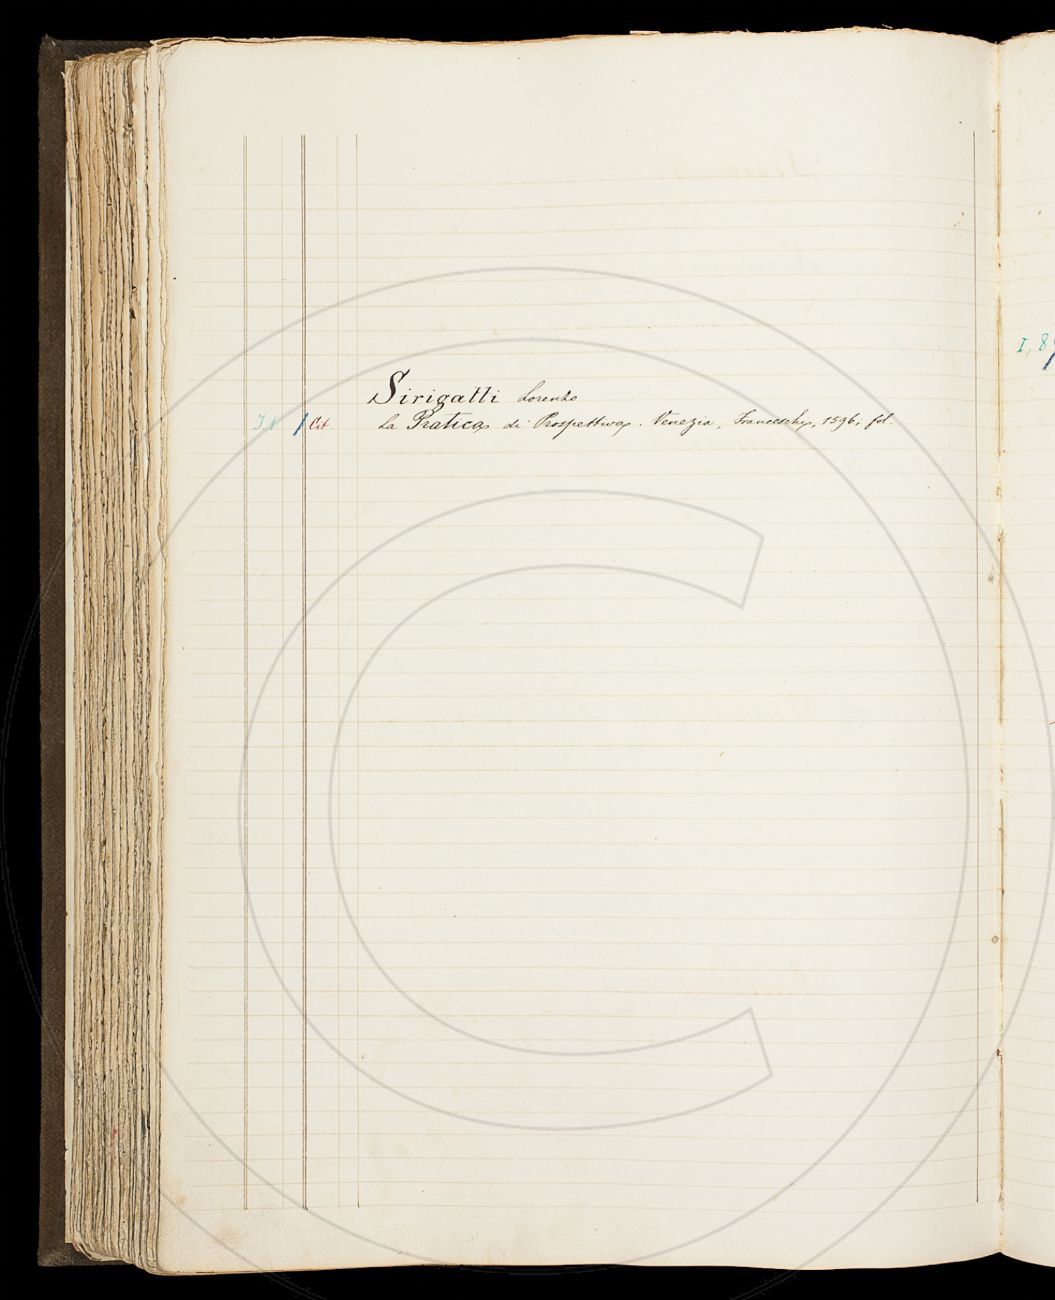 Sirigatti Lorenzo
Cit La Pratica di Prospettiva. Venezia, Franceschi, 1596; fol.
I, 8